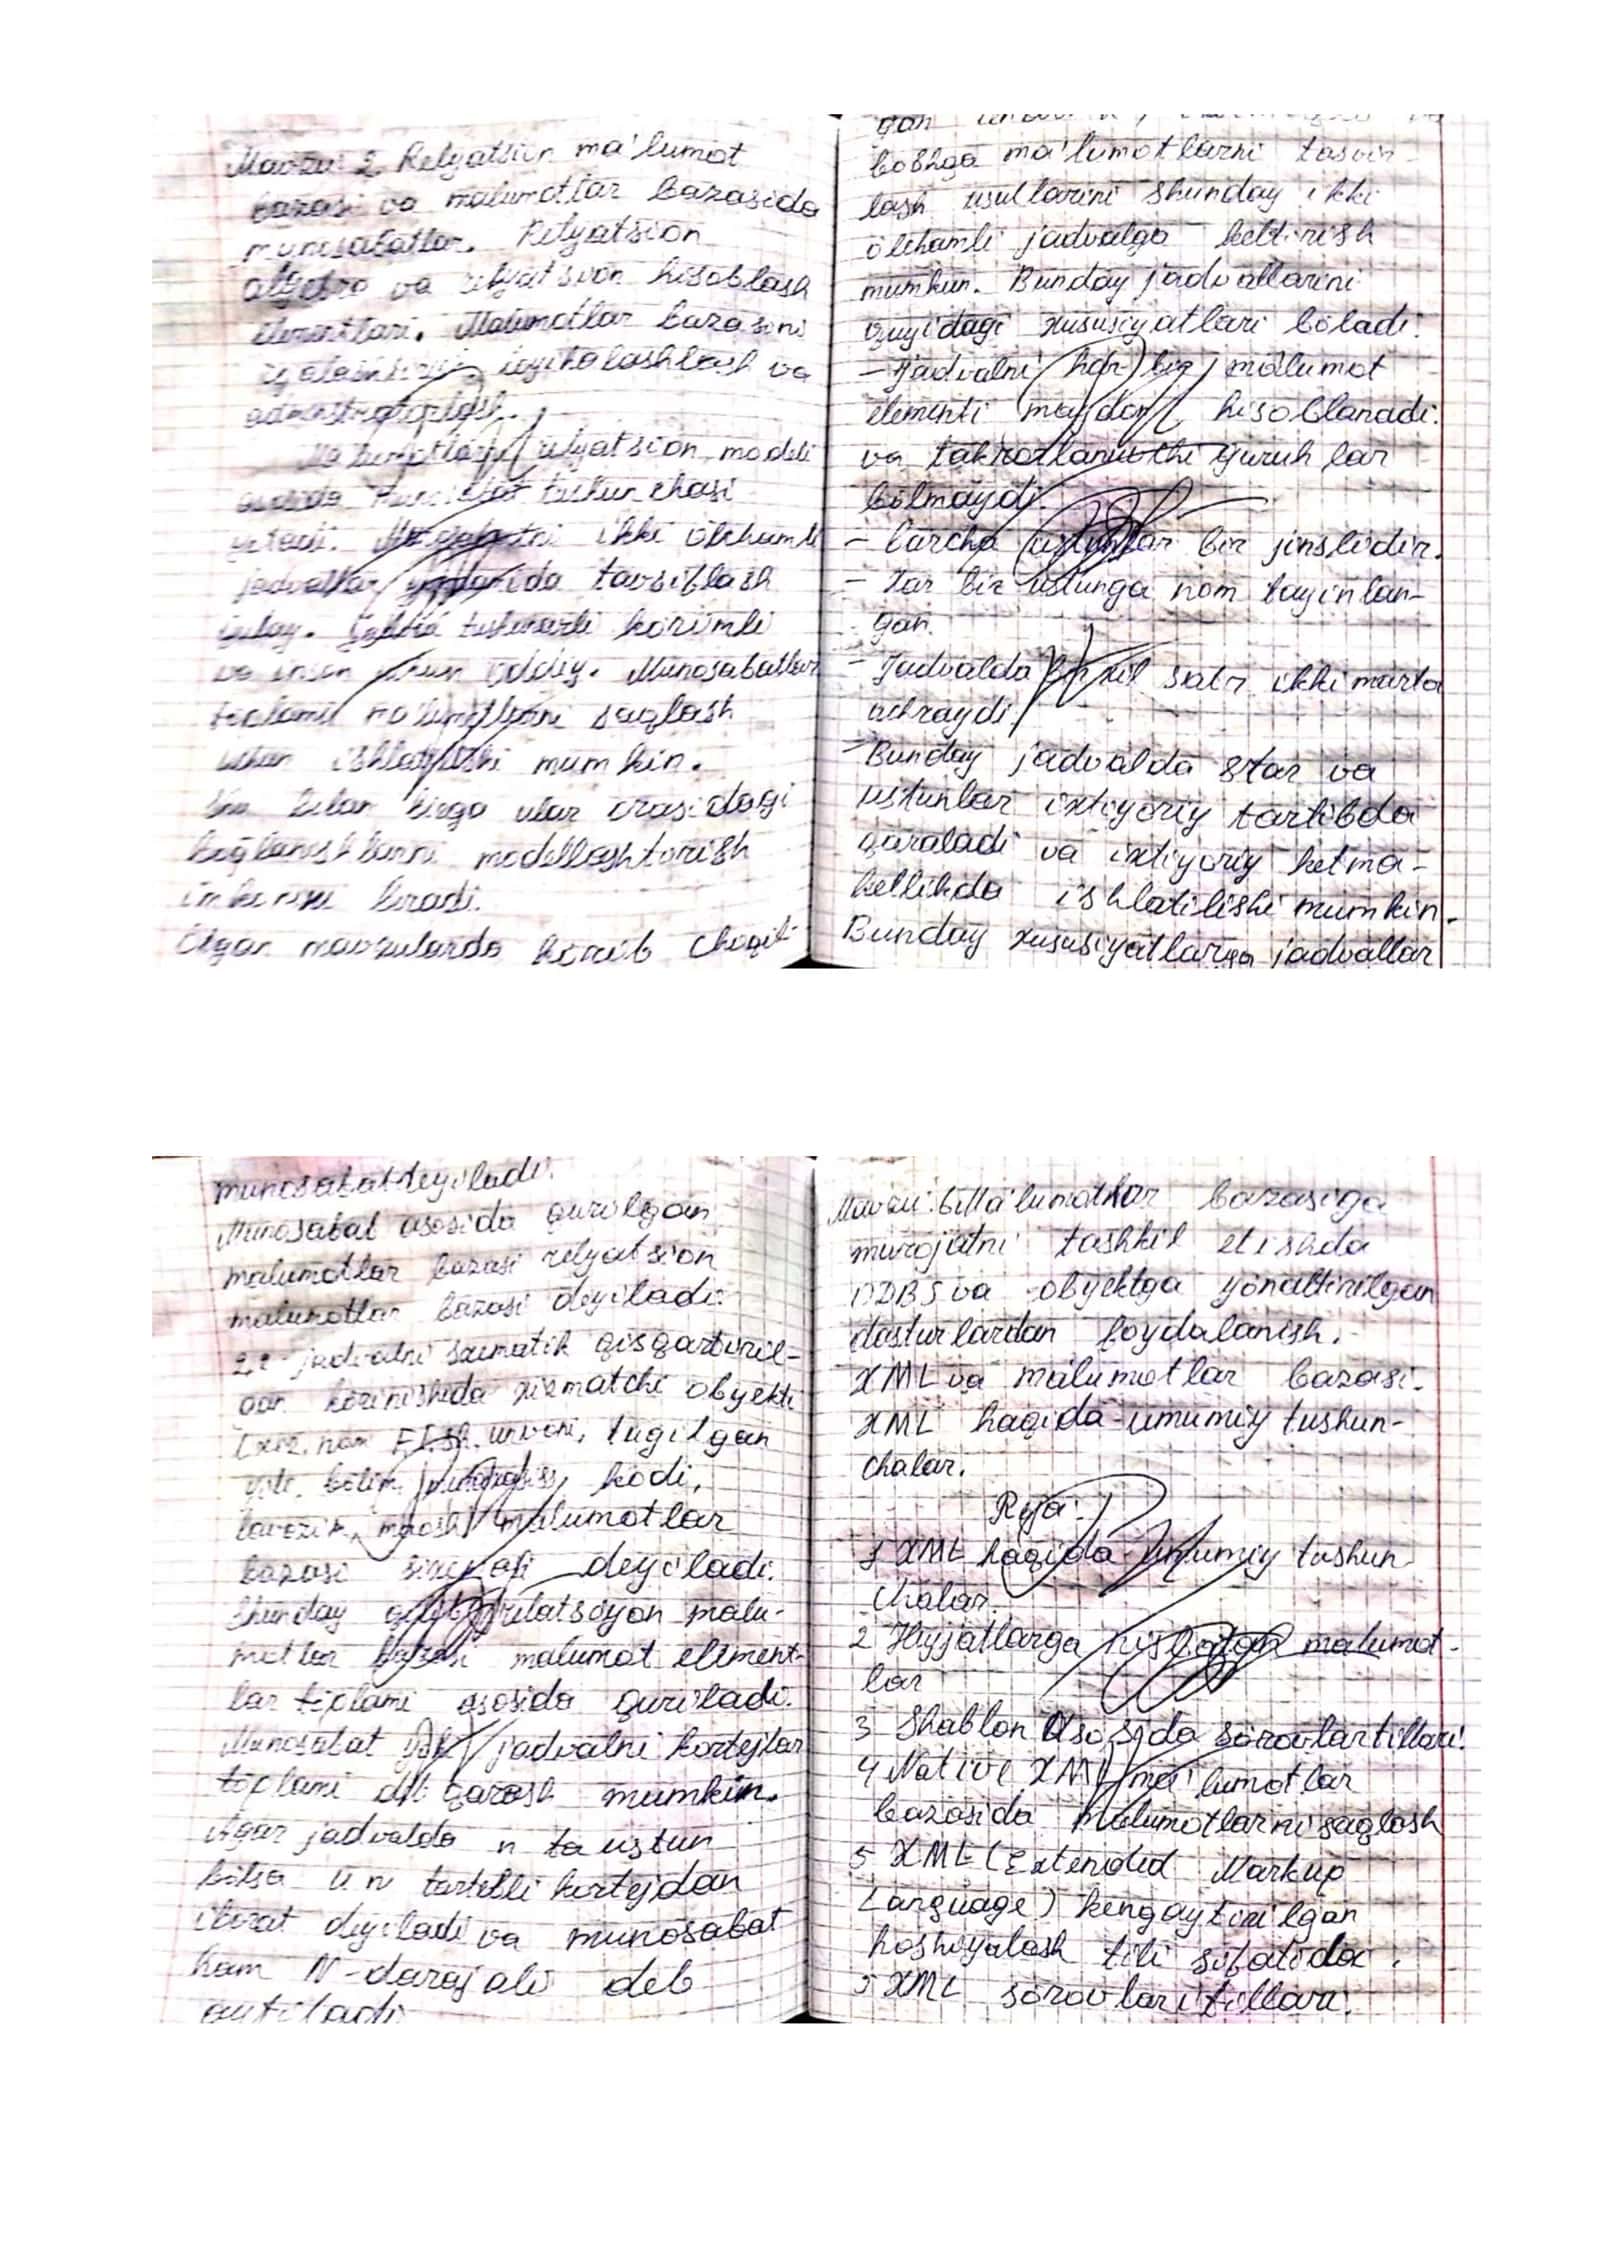 Mavzu 2. Relyatsion ma'lumot
bazasi va malumotlar bazasida
munosabatlar. Relyatsion
algebra va relyatsion hisoblash
elementlari. Malumotlar bazasini
loyihalashtirish va
Ma'lumotlarni relyatsion modeli
asosida munosabat tushunchasi
yotadi. Munosabatni ikki ölchamli
jadvallar yordamida tavsiflash
qulay. Jadval tushunarli körimli
va inson uchun oddiy. Munosabatlar
töplami ma'lumotlarni saqlash
uchun ishlatilishi mumkin.
Shu bilan birga ular orasidagi
boğlanishlarni modellashtirish
imkonini beradi.
Ötgan mavzularda körib chiqil-
gan
boshqa ma'lumotlarni tasvir-
lash usullarini shunday ikki
ölchamli jadvalga keltirish
mumkin. Bunday jadvallarini
quyidagi xususiyatlari böladi:
- Jadvalni har bir malumot
elementi maydon hisoblanadi.
va takrorlanuvchi guruhlar
bölmaydi.
- barcha ustunlar bir jinslidir.
- Har bir ustunga nom tayinlan-
gan.
- Jadvalda bir xil satr ikki marta
uchraydi.
- Bunday jadvalda star va
ustunlar ixtiyoriy tartibda
qaraladi va ixtiyoriy ketma-
ketlikda ishlatilishi mumkin.
Bunday xususiyatlarga jadvallar
munosabat deyiladi.
Munosabat asosida qurilgan
malumotlar bazasi relyatsion
malumotlar bazasi deyiladi.
2,2 jadvalni sxematik qisqartiril-
gan körinishida xizmatchi obyekti
(xiz. nom F.I.Sh. unvoni, tugilgan
yili, bölim, kodi,
lavozim, maosh) malumotlar
bazasi sxemasi deyiladi.
Shunday qilib relatsiyon malu-
motlar bazasi malumot element-
lar töplami asosida quriladi.
Munosabat yoki jadvalni kortejlar
töplami deb qarash mumkin.
Agar jadvalda n ta ustun
bölsa u n tartibli kortejdan
iborat deyiladi va munosabat
ham N-darajali deb
aytiladi
Mavzu: 6. Ma'lumotlar bazasiga
murojatni tashkil etishda
ODBS va obyektga yönaltirilgan
dasturlardan foydalanish.
XML va malumotlar bazasi.
XML haqida umumiy tushun-
chalar.
Reja:
1 XML haqida umumiy tushun
chalar.
2 Hujjatlarga nisbatan malumot-
lar
3 Shablon asosida sörovlar tillari.
4 Native XML ma'lumotlar
bazasida malumotlarni saqlash
5 XML (Extended Markup
Language) kengaytirilgan
hoshiyalash tili sifatida.
5 XML sörovlari tillari.